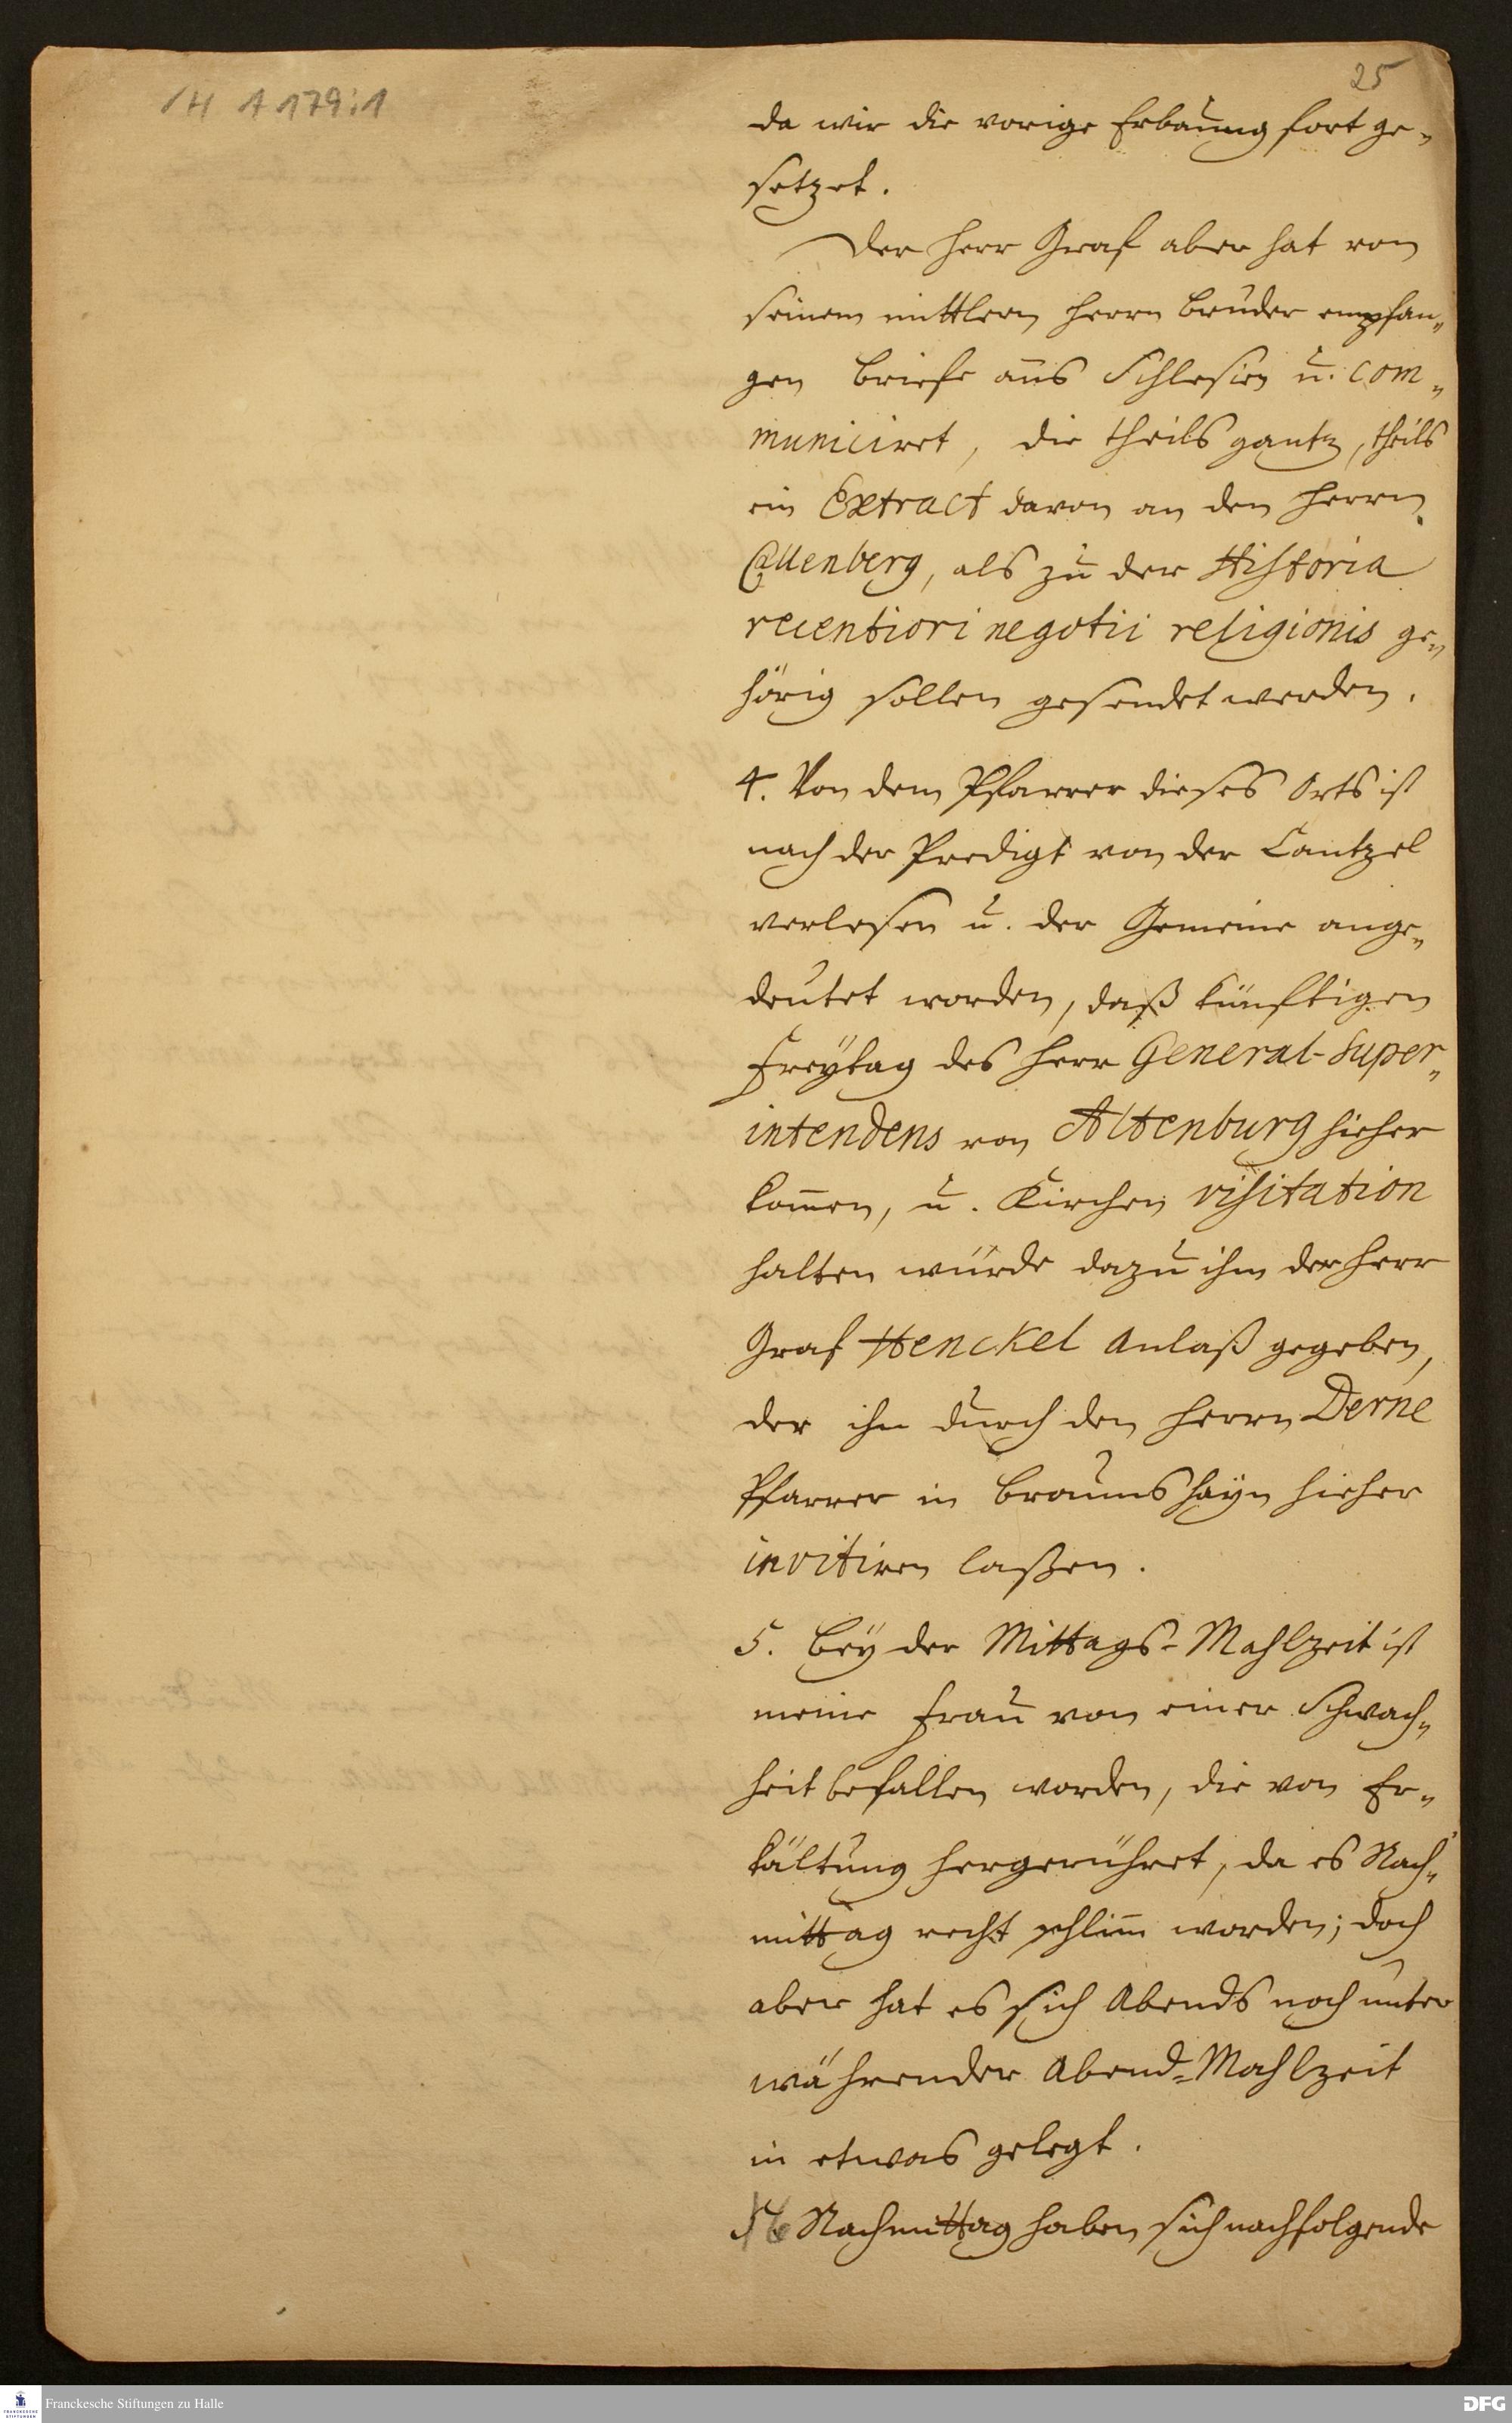 /H A 179:1
25
da wir die vorige Erbauung fort ge-
setzet.
Der Herr Graf aber hat von
seinem mittlern Herrn Bruder empfan-
gen Briefe aus Schlesien u. com-
municiret, die theils gantz, theils
ein Extract davon an den Herrn
Callenberg, als zu der Historia
recentiori negotii religionis ge-
hörig sollen gesendet werden.
4. Von dem Pfarrer dieses Orts ist
nach der Predigt von der Cantzel
verlesen u. der Gemeine ange-
deutet worden, daß künftigen
Freytag des Herr General-Super-
intendens von Altenburg hieher
kom̄en, u. Kirchen visitation
halten würde dazu ihm der Herr
Graf Henckel Anlaß gegeben,
der ihn durch den Herrn Derne
Pfarrer in Braunshayn hieher
invitiren laßen.
5. Bey der Mittags-Mahlzeit ist
meine Frau von einer Schwach-
heit befallen worden, die von Er-
kältung hergerühret, da es Nach-
mittag recht schlim̄ worden; doch
aber hat es sich Abends noch unter
währender Abend-Mahlzeit
in etwas gelegt.
6 Nachmittag haben sich nachfolgende
FRANCKESCHE STIFTUNGEN
Franckesche Stiftungen zu Halle
DFG